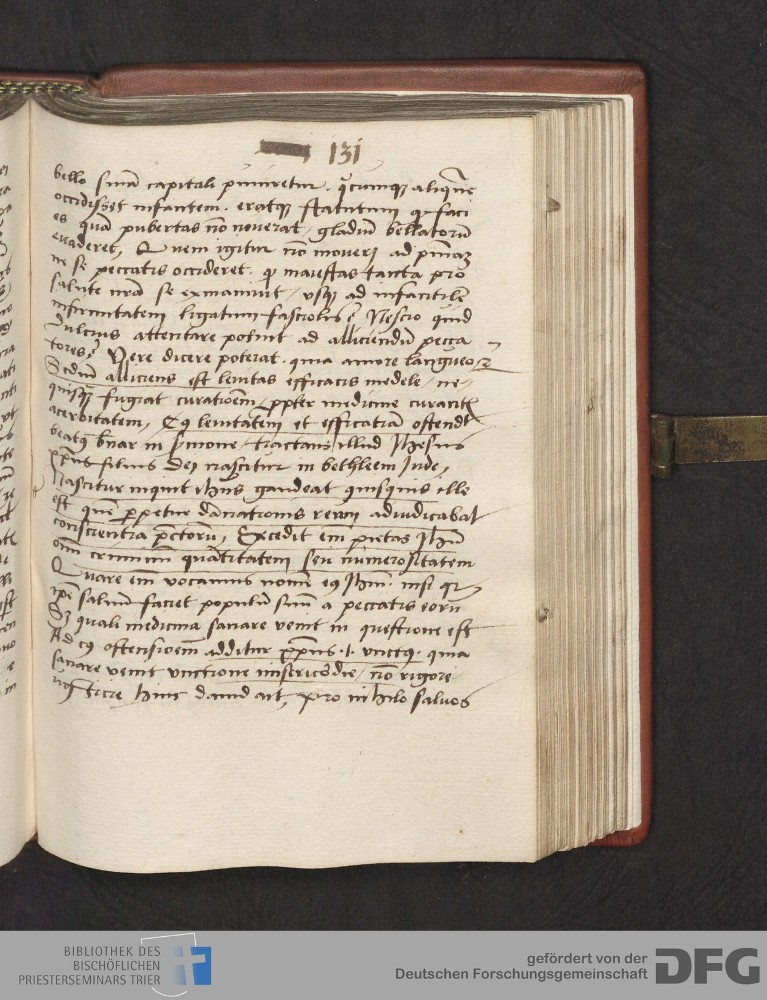 131
bello sniā capitali puniretur. q̄cumqꝫ aliquē
occidisset infantem. eratqꝫ statutum qꝫ faci
es quā pubertas nō noverat, gladiū bellatorū
evaderet, Quem igitur nō moveꝫ ad
ne se peccatis occideret. qꝫ maiestas tanta pro
salute nrā se exinanivit, usqꝫ ad infantilē
infirmitatem ligatum fasciolis? Nescio quid
dulcius attentare potuit ad alliciendū pecca
tores? Vere dicere poterat. quia amore langueo
Scdm̄ alliciens est lenitas efficacis medele, ne
quisqꝫ fugiat curatioēm ꝓpter medicine curantis
acerbitatem, Cuiꝰ lenitatem et efficatiā ostendit
beatꝰ b̄nar in sermone tractans illud Jhesus
xp̄us filius dei nascitur in bethleem Jude,
Nascitur inquit ihūs gaudeat quisquis ille
est quē ꝑpetue dānationis reum adiudicabat
conscientia pctorū, Excedit em̄ pietas Jhū
om̄ criminum quātitatem seu numerositatem
Quare em̄ vocamus nomē eiꝰ Jhm̄ nisi qꝫ
ipē salvū faciet populū suū a peccatis eorū
Sꝫ quali medicina sanare venit in questione est
Ad cuiꝰ ostensioēm additur xp̄us .i. unctꝰ. quia
sanare venit unctione misericordie, nō rigore
iusticie hinc david ait, pro nihilo salvos
BIBLIOTHEK DES
BISCHÖFLICHEN
PRIESTERSEMINARS TRIER
gefördert von der
Deutschen Forschungsgemeinschaft
DFG